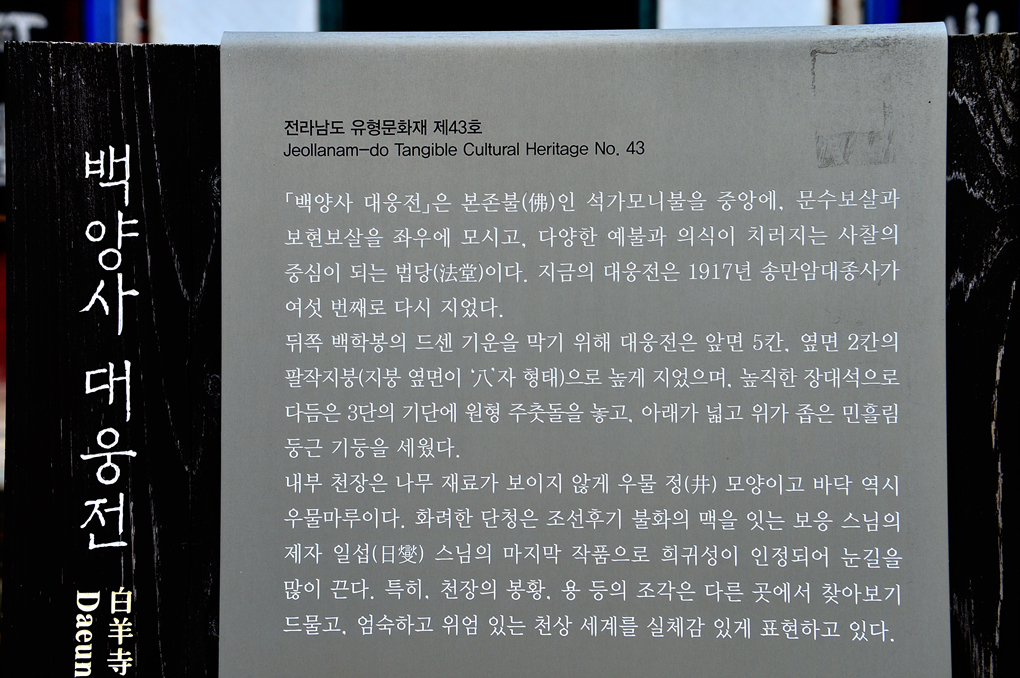 백양사 대웅전
白羊寺
Daeun
전라남도 유형문화재 제43호
Jeollanam-do Tangible Cultural Heritage No. 43
「백양사 대웅전」은 본존불(佛)인 석가모니불을 중앙에, 문수보살과
보현보살을 좌우에 모시고, 다양한 예불과 의식이 치러지는 사찰의
중심이 되는 법당(法堂)이다. 지금의 대웅전은 1917년 송만암대종사가
여섯 번째로 다시 지었다.
뒤쪽 백학봉의 드센 기운을 막기 위해 대웅전은 앞면 5칸, 옆면 2칸의
팔작지붕(지붕 옆면이 ‘八’자 형태)으로 높게 지었으며, 높직한 장대석으로
다듬은 3단의 기단에 원형 주춧돌을 놓고, 아래가 넓고 위가 좁은 민흘림
둥근 기둥을 세웠다.
내부 천장은 나무 재료가 보이지 않게 우물 정(井) 모양이고 바닥 역시
우물마루이다. 화려한 단청은 조선후기 불화의 맥을 잇는 보응 스님의
제자 일섭(日燮) 스님의 마지막 작품으로 희귀성이 인정되어 눈길을
많이 끈다. 특히, 천장의 봉황, 용 등의 조각은 다른 곳에서 찾아보기
드물고, 엄숙하고 위엄 있는 천상 세계를 실체감 있게 표현하고 있다.